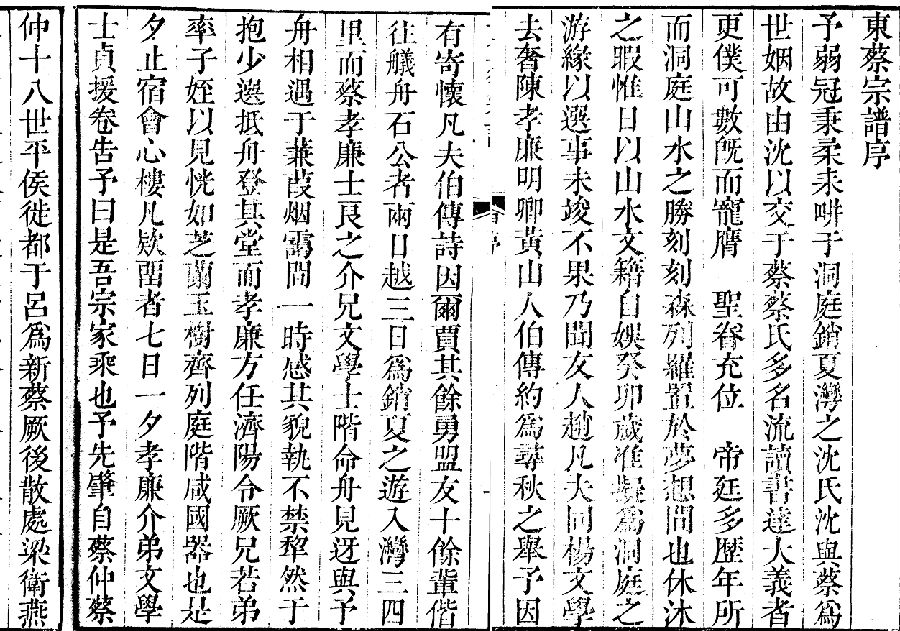 東蔡宗譜序
予弱冠秉柔耒畊于洞庭銷夏灣之沈氏沈與蔡爲
世姻故由沈以交于蔡蔡氏多名流讀書達大義者
更僕可數既而寵膺　聖眷充位　帝廷多歷年所
而洞庭山水之勝刻刻森列羅置於夢想間也休沐
之暇惟日以山水文籍自娛癸卯歲准擬爲洞庭之
游緣以選事未竣不果乃聞友人趙凡夫同楊文學
去奢陳孝廉明卿黃山人伯傳約爲尋秋之舉予因
有寄懷凡夫伯傳詩因爾賈其餘勇盟友十餘輩偕
往艤舟石公者兩日越三日爲銷夏之遊入灣三四
里而蔡孝廉士良之介兄文學士階命舟見迓與予
舟相遇于蒹葭烟靄間一時感其貌執不禁犂然于
抱少選抵舟登其堂而孝廉方任濟陽令厥兄若弟
率子姪以見恍如芝蘭玉樹齊列庭階咸國器也是
夕止宿會心樓凡欵畱者七日一夕孝廉介弟文學
士貞援卷告予曰是吾宗家乘也予先肇自蔡仲蔡
仲十八世平侯徙都于呂爲新蔡厥後散處梁衛燕